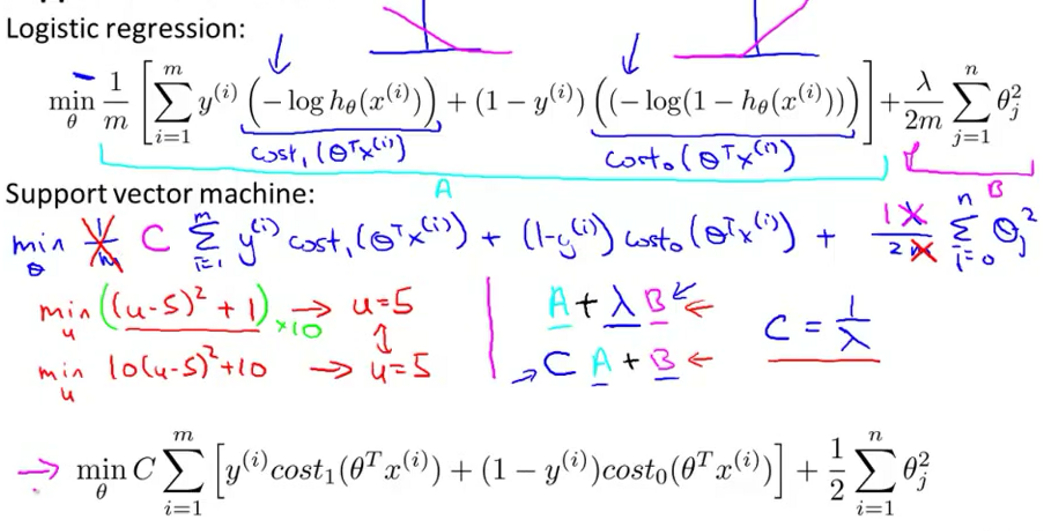 Logistic regression:
min_θ 1/m [ Σ_{i=1}^{m} y^{(i)} (− log h_θ(x^{(i)})) + (1 − y^{(i)}) ((− log(1 − h_θ(x^{(i)}))) ] + λ/2m Σ_{j=1}^{n} θ_j^2
cost_1(θ^T x^{(i)}) cost_0(θ^T x^{(i)})
A B
Support vector machine:
min_θ 1/m C Σ_{i=1}^{m} y^{(i)} cost_1(θ^T x^{(i)}) + (1-y^{(i)}) cost_0(θ^T x^{(i)}) + 1 λ/2m Σ_{i=0}^{n} θ_j^2
min_u ((u-5)^2 + 1) ×10 → u=5
min_u 10(u-5)^2+10 → u=5
A + λ B ←
→ C A + B ←
C = 1/λ
→ min_θ C Σ_{i=1}^{m} [ y^{(i)} cost_1(θ^T x^{(i)}) + (1 − y^{(i)}) cost_0(θ^T x^{(i)}) ] + 1/2 Σ_{i=1}^{n} θ_j^2